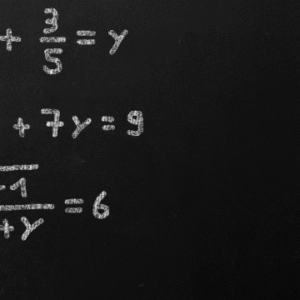 + 3/5 = y
+ 7y = 9
-1/+y = 6